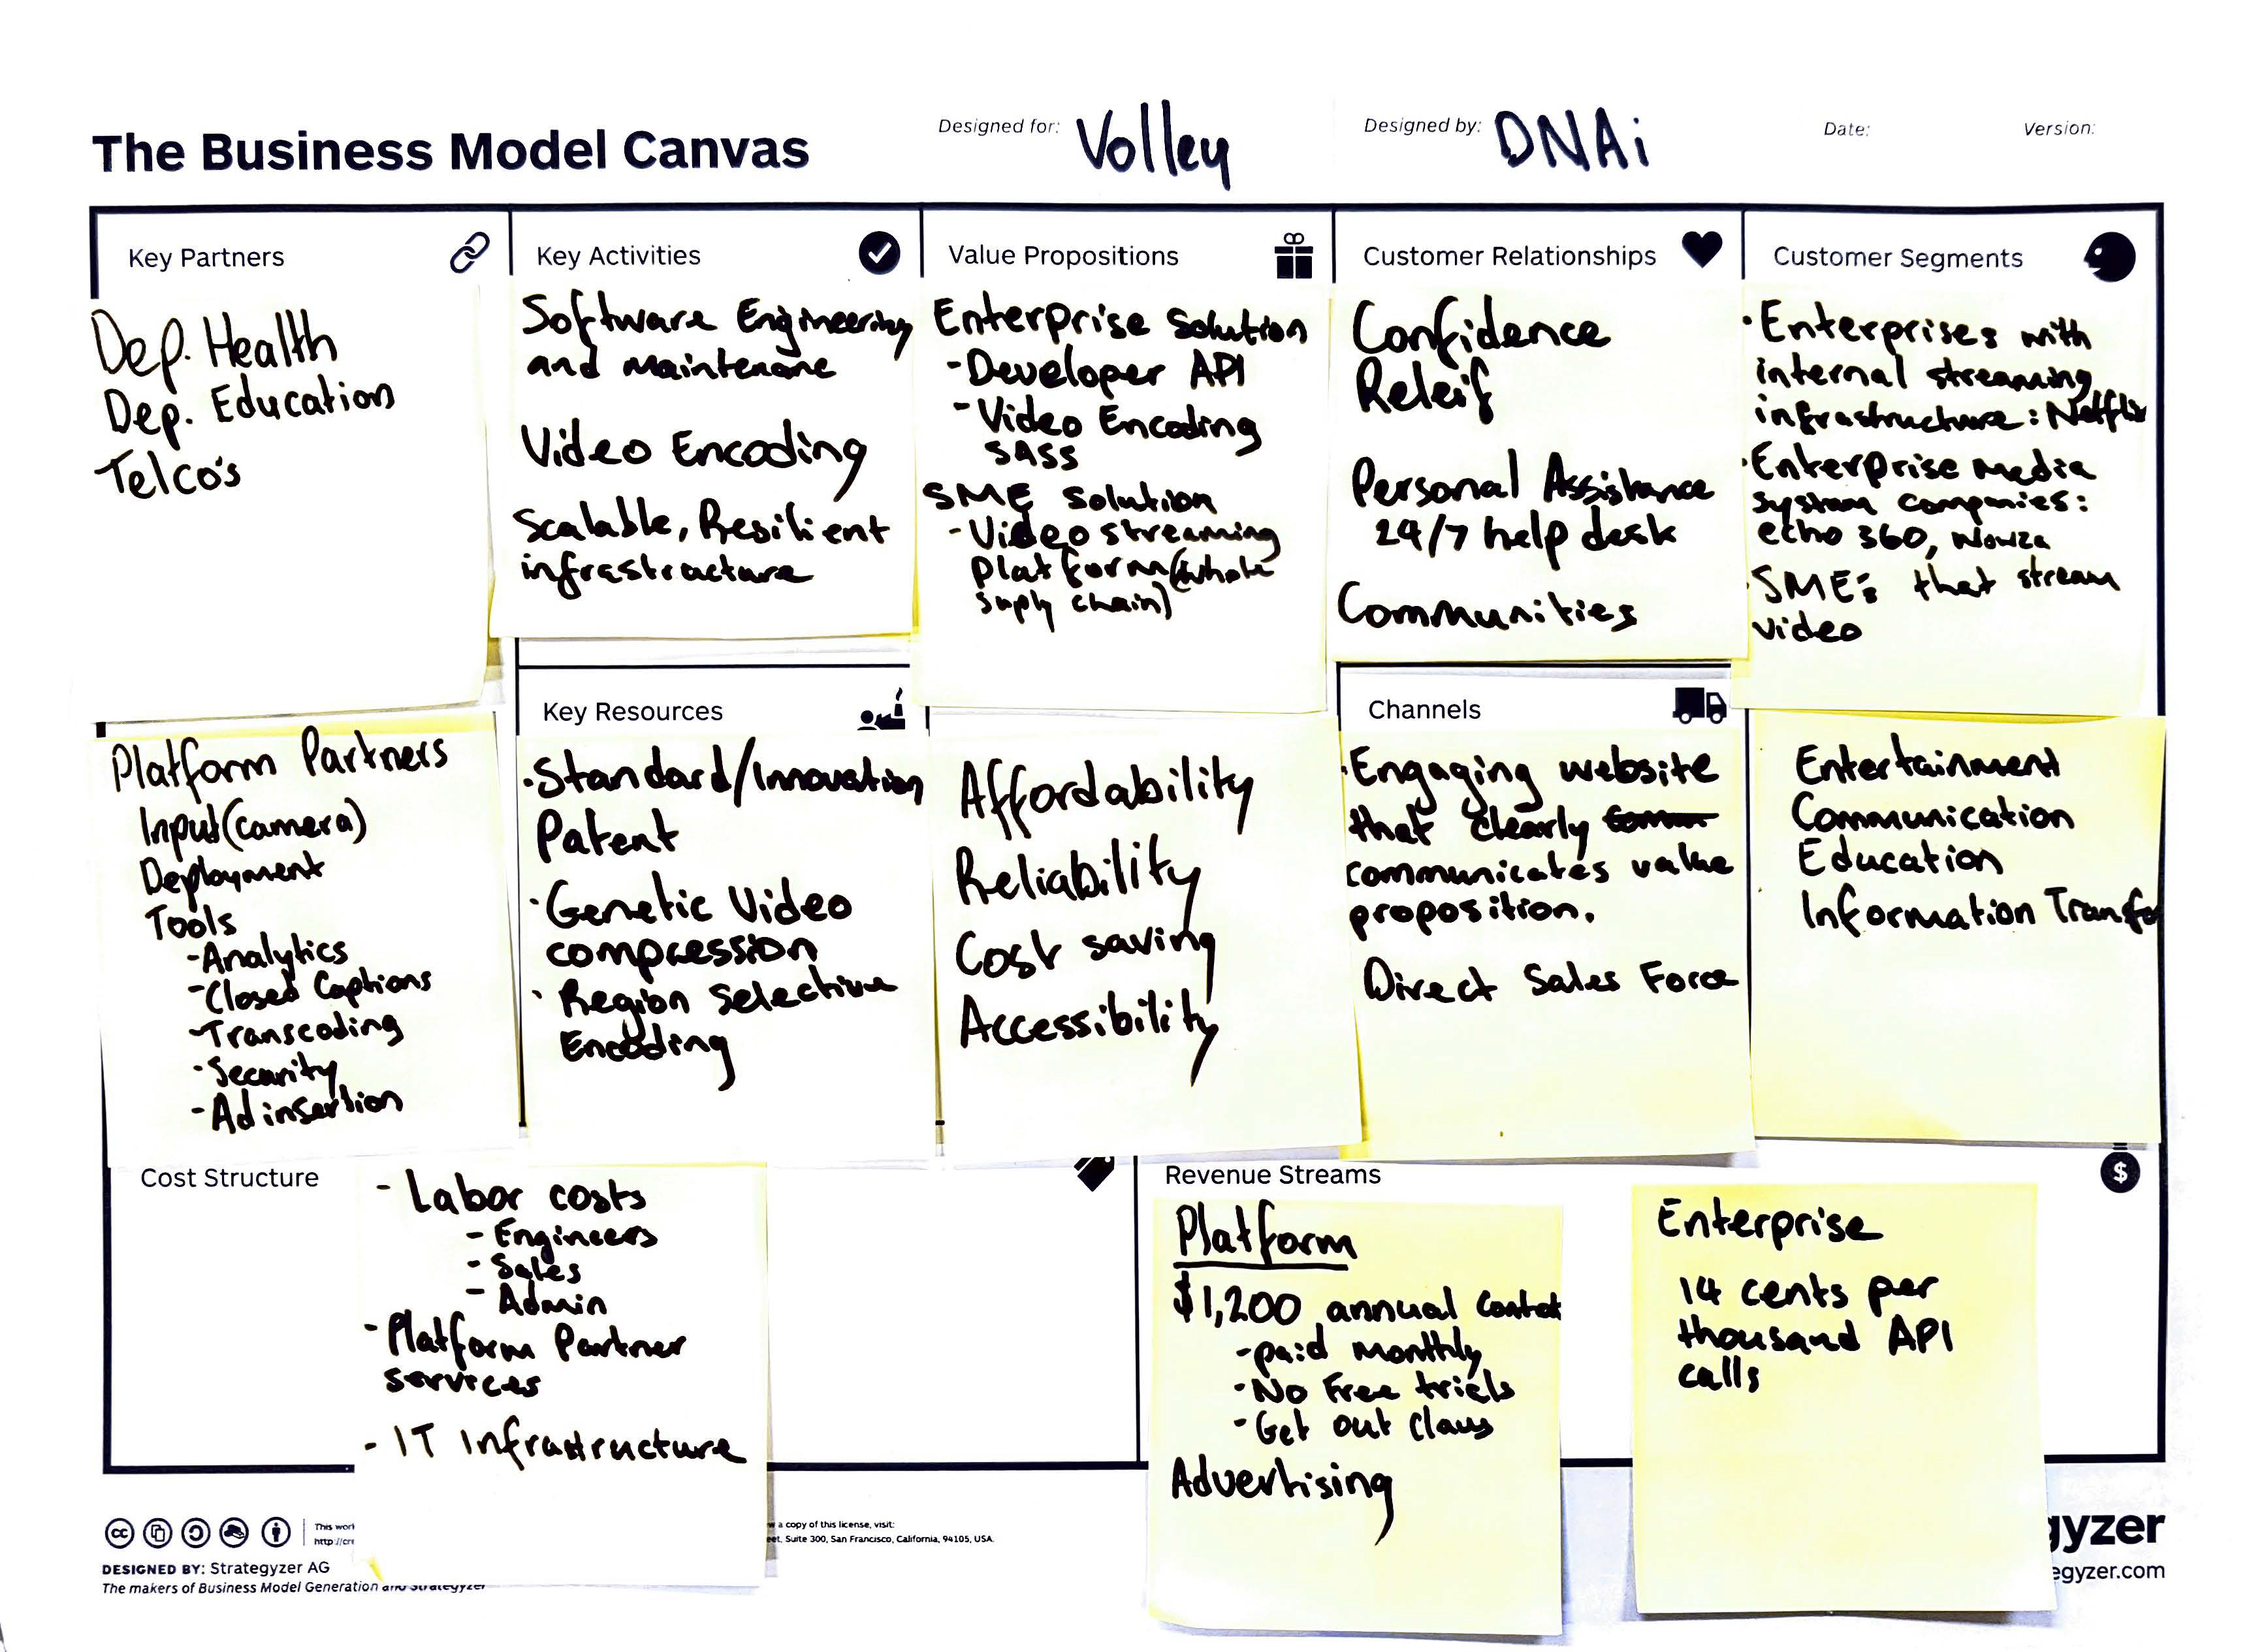 The Business Model Canvas
Designed for: Volley
Designed by: DNAi
Date:
Version:
Key Partners
Dep. Health
Dep. Education
Telco's
Platform Partners
Input (camera)
Deployment
Tools
- Analytics
- Closed Captions
- Transcoding
- Security
- Ad insertion
Key Activities
Software Engineering
and maintenane
Video Encoding
Scalable, Resilient
infrastructure
Key Resources
· Standard/Innovation
Patent
· Genetic Video
compression
· Region Selective
Encoding
Value Propositions
Enterprise Solution
- Developer API
- Video Encoding
SASS
SME Solution
- Video streaming
Platform (whole
suply chain)
Affordability
Reliability
Cost saving
Accessibility
Customer Relationships
Confidence
Releif
Personal Assistance
24/7 help desk
Communities
Channels
· Engaging website
that clearly
communicates value
proposition.
Direct Sales Force
Customer Segments
· Enterprises with
internal streaming
infrastructure: Netflix
· Enterprise media
system companies:
echo 360, Wowza
· SME's that stream
video
Entertainment
Communication
Education
Information Transfe
Cost Structure
- Labor costs
- Engineers
- Sales
- Admin
- Platform Partner
services
- IT Infrastructure
Revenue Streams
Platform
$1,200 annual
- paid monthly
- No Free triels
- Get out Claus
Advertising
Enterprise
14 cents per
thousand API
calls
$
cc
This worl
http://cre
w a copy of this license, visit:
eet, Suite 300, San Francisco, California, 94105, USA.
DESIGNED BY: Strategyzer AG
The makers of Business Model Generation and Strategyzer
gyzer
egyzer.com